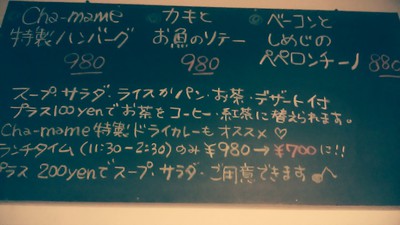 Cha-mame
特製ハンバーグ
980
カキと
お魚のソテー
980
ベーコンと
しめじの
ペペロンチーノ 880
スープ・サラダ・ライスかパン・お茶・デザート付
プラス100yenでお茶をコーヒー・紅茶に替えられます。
Cha-mame 特製ドライカレーもオススメ♡
ランチタイム(11:30-2:30)のみ ¥980→¥700に!!
プラス 200yenでスープ・サラダ・ご用意できます。